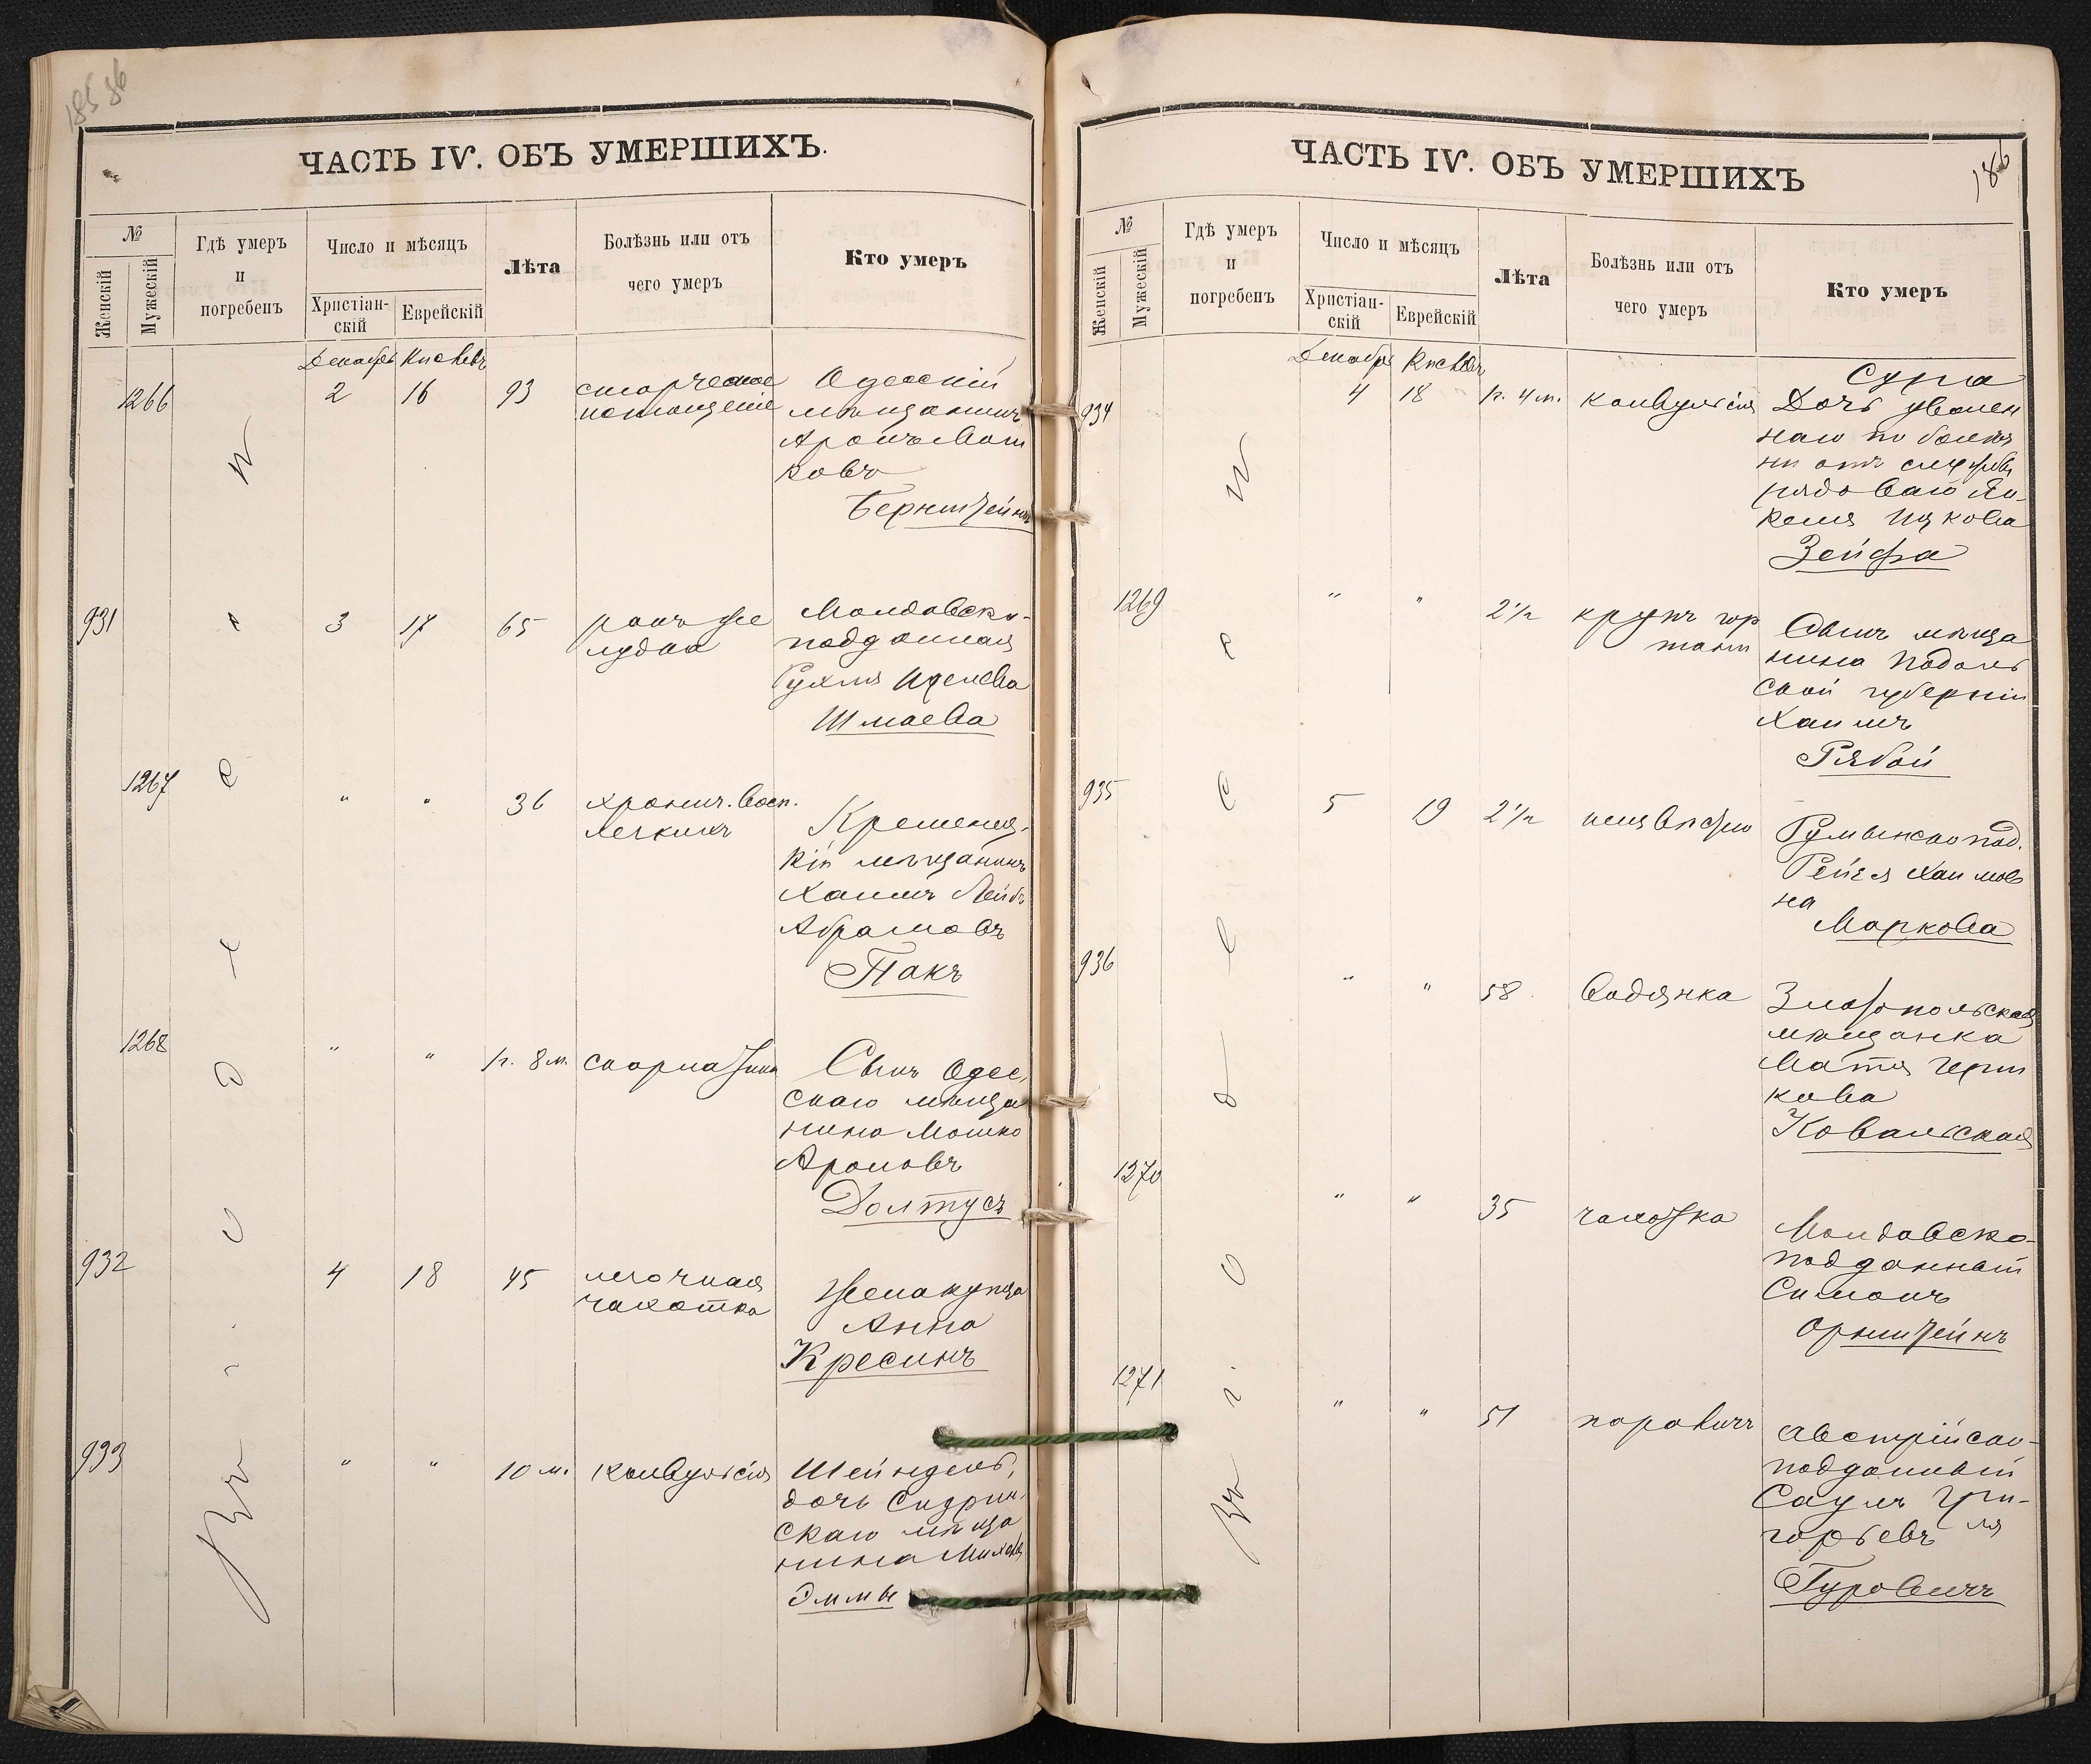 185 86
ЧАСТЬ IV. ОБЪ УМЕРШИХЪ.
№
Женскій
Мужескій
Гдѣ умеръ
и
погребенъ
Число и мѣсяцъ
Христіан-
скій
Еврейскій
Лѣта
Болѣзнь или отъ
чего умеръ
Кто умеръ
Декабрь Кислевъ
1266 2 16 93 старческое
истощеніе
Одесскій
мѣщанинъ
Аронъ
ковъ
Бернштейнъ
931 3 17 65 ракъ же
лудка
Молдавско-
подданная
Рухля
Шмаева
1267 " " 36 хронич. восп.
легкихъ
Кременец-
кій мѣщанинъ
Хаимъ Лейбъ
Абрамовъ
Пакъ
1268 " " 1 г. 8 м. скарлатина
Сынъ Одес
скаго мѣща
нина Мошко
Ароновъ
Долтусъ
932 4 18 45 легочная
чахотка
Жена купца
Анна
Кресинъ
933 " " 10 м. конвульсія
Шейндель,
дочь
скаго мѣща
нина
Эммы
Въ Одессѣ
ЧАСТЬ IV. ОБЪ УМЕРШИХЪ
186
№
Женскій
Мужескій
Гдѣ умеръ
и
погребенъ
Число и мѣсяцъ
Христіан-
скій
Еврейскій
Лѣта
Болѣзнь или отъ
чего умеръ
Кто умеръ
Декабрь Кислевъ
934 4 18 1 г. 4 м. конвульсія
Сура
Дочь уволен
наго по болѣз
ни отъ службы
рядоваго Ян-
келя Ицкова
Зейфа
1269 " " 2 1/2 крупъ гор
тани
Сынъ мѣща
нина Подоль
ской губерніи
Хаимъ
Рябой
935 5 19 2 1/2
Румынско под.
Рейзя Хаимов
на
Маркова
936 " " 58 водянка
Златопольская
мѣщанка
Матя Герш
кова
Ковальская
1270 " " 35 чахотка
Молдавско-
подданный
Симонъ
Орнштейнъ
1271 " " 51 параличъ
Австрійско-
подданный
Саулъ Гри-
горьевъ
Гуровичъ
Въ Одессѣ